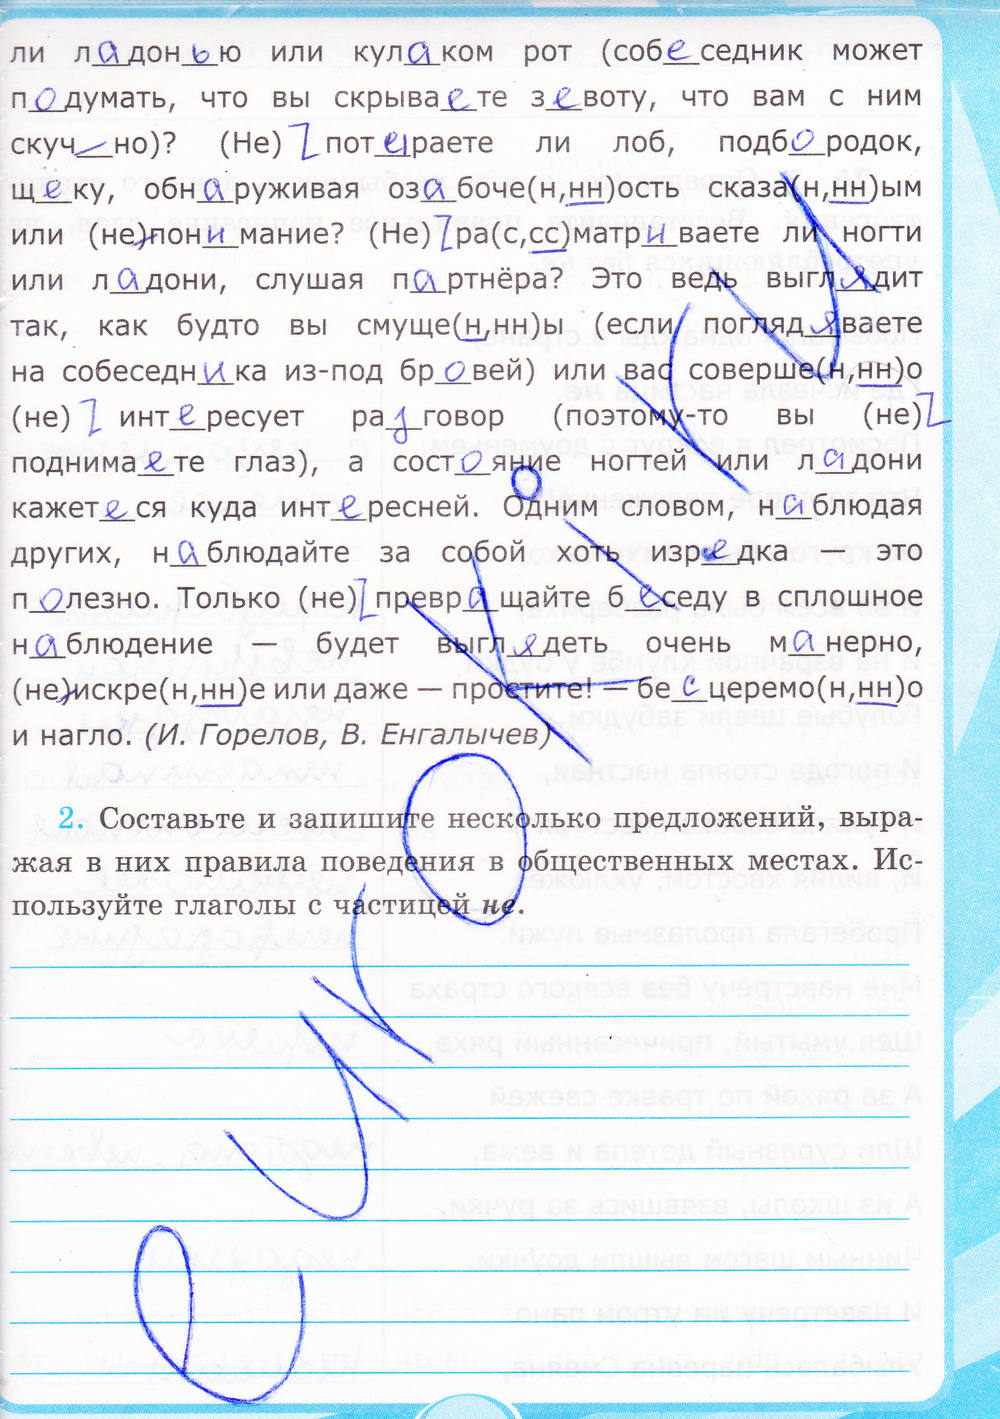 ли ладонью или кулаком рот (собеседник может
подумать, что вы скрываете зевоту, что вам с ним
скучно)? (Не) потираете ли лоб, подбородок,
щеку, обнаруживая озабоче(н,нн)ость сказа(н,нн)ым
или (не)понимание? (Не) ра(с,сс)матриваете ли ногти
или ладони, слушая партнёра? Это ведь выглядит
так, как будто вы смуще(н,нн)ы (если поглядываете
на собеседника из-под бровей) или вас соверше(н,нн)о
(не) интересует разговор (поэтому-то вы (не)
поднимаете глаз), а состояние ногтей или ладони
кажетеся куда интересней. Одним словом, наблюдая
других, наблюдайте за собой хоть изредка — это
полезно. Только (не) превращайте беседу в сплошное
наблюдение — будет выглядеть очень манерно,
(не)искре(н,нн)е или даже — простите! — бесцеремо(н,нн)о
и нагло. (И. Горелов, В. Енгалычев)
2. Составьте и запишите несколько предложений, выра-
жая в них правила поведения в общественных местах. Ис-
пользуйте глаголы с частицей не.